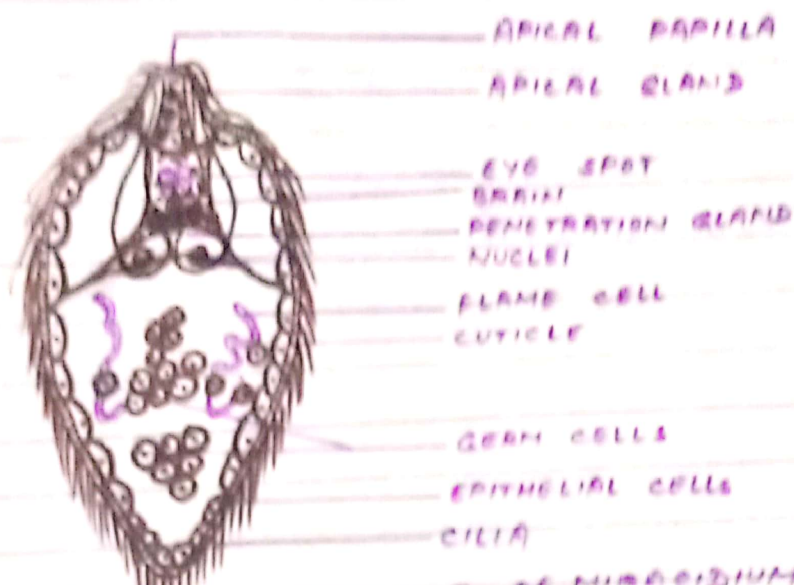 APICAL PAPILLA
APICAL GLAND
EYE SPOT
BRAIN
PENETRATION GLAND
NUCLEI
FLAME CELL
CUTICLE
GERM CELLS
EPITHELIAL CELLS
CILIA
OF MIRACIDIUM